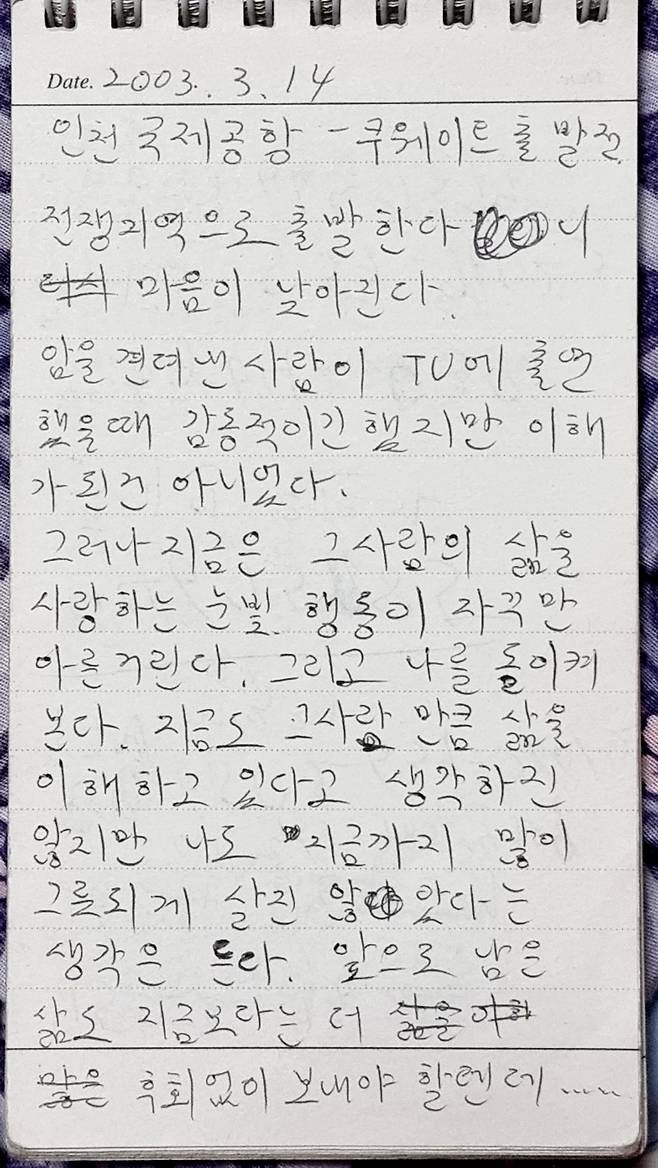 Date. 2003. 3. 14
인천 국제공항 - 쿠웨이트 출발전.
전쟁지역으로 출발한다 니
마음이 낮아진다.
암을 견뎌낸 사람이 TV에 출연
했을때 감동적이긴 했지만 이해
가 된건 아니었다.
그러나 지금은 그사람의 삶을
사랑하는 눈빛. 행동이 자꾸만
아른거린다. 그리고 나를 돌이켜
본다. 지금도 그사람 만큼 삶을
이해하고 있다고 생각하진
않지만 나도 지금까지 많이
그릇되게 살진 않았다는
생각은 든다. 앞으로 남은
삶도 지금보다는 더
후회없이 보내야 할텐데 .....